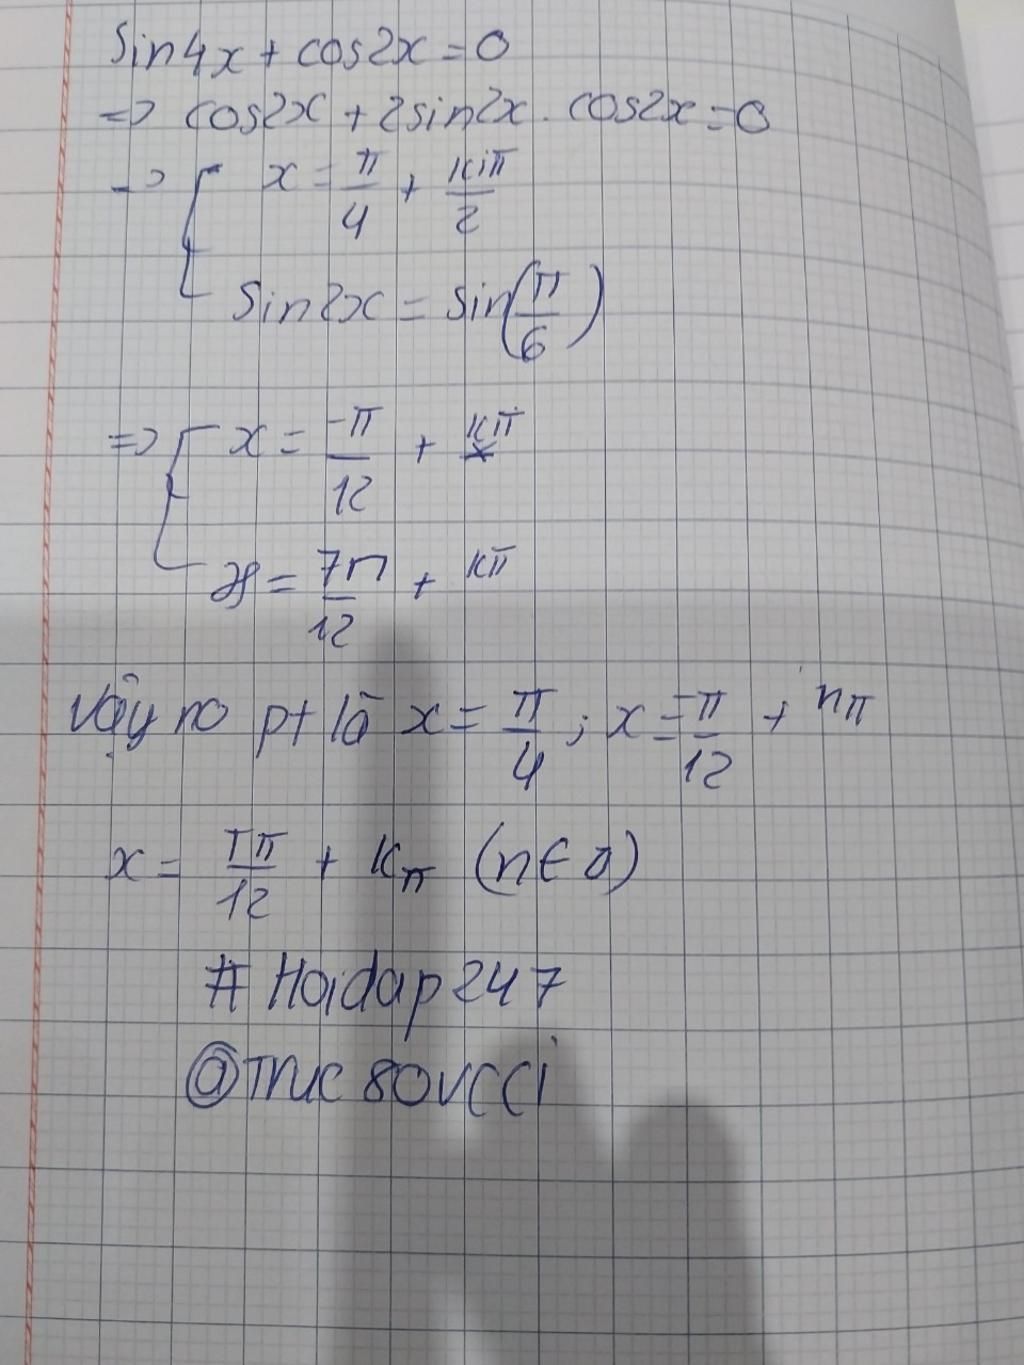 sin4x + cos2x = 0
=> cos2x + 2sin2x . cos2x = 0
-> [ x = π/4 + kπ/2
sin2x = sin(π/6)
=> [ x = -π/12 + kπ
x = 7π/12 + kπ
Vậy no pt là x = π/4 ; x = -π/12 + nπ
x = 7π/12 + kπ (n ∈ Z)
# Hoidap247
@Truc80vcci